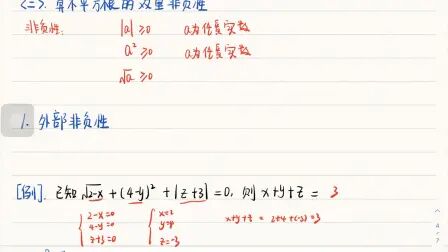 <二>. 算术平方根的双重非负性
非负性: |a| ≥0 a为任意实数
a² ≥0 a为任意实数
√a ≥0
1. 外部非负性
[例]. 已知 √2-x + (4-y)² + |z+3| =0, 则 x+y+z = 3
{ 2-x=0 { x=2 x+y+z = 2+4+(-3)=3
4-y=0 y=4
z+3=0 z=-3